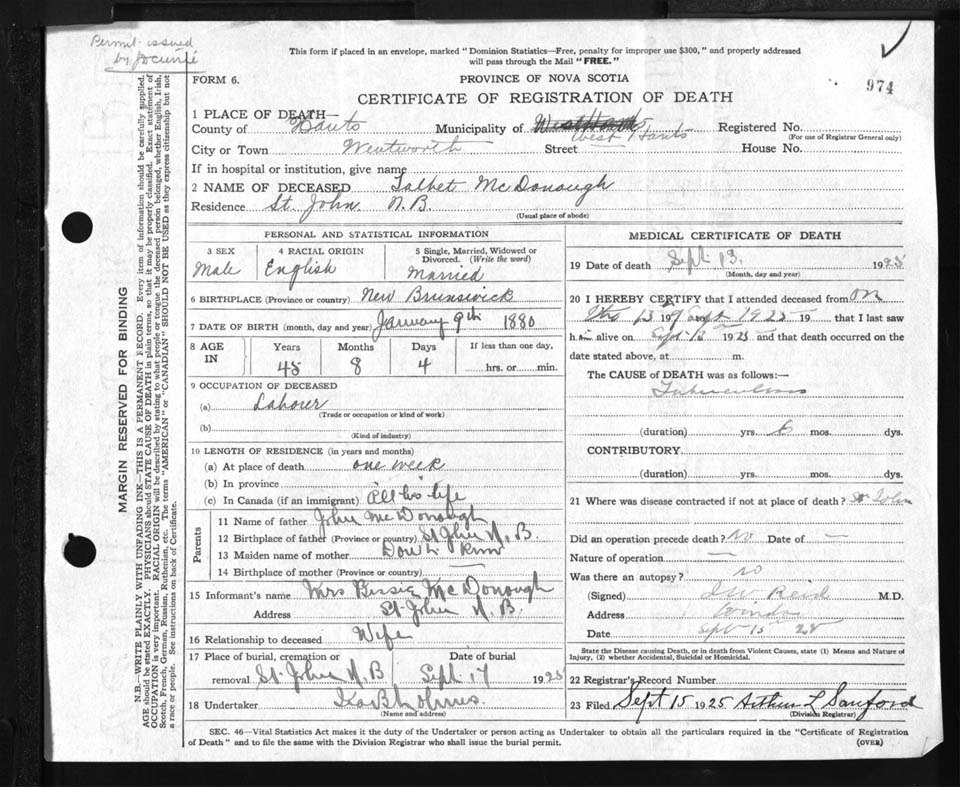 Permit issued
by
This form if placed in an envelope, marked "Dominion Statistics—Free, penalty for improper use $300," and properly addressed
will pass through the Mail "FREE."
FORM 6.
PROVINCE OF NOVA SCOTIA
974
CERTIFICATE OF REGISTRATION OF DEATH
1 PLACE OF DEATH—
County of Hants Municipality of West Hants Registered No.
(For use of Registrar General only)
City or Town Wentworth Street House No.
If in hospital or institution, give name
2 NAME OF DECEASED Talbet McDonough
Residence St. John N.B.
(Usual place of abode)
PERSONAL AND STATISTICAL INFORMATION
3 SEX Male
4 RACIAL ORIGIN English
5 Single, Married, Widowed or Divorced. (Write the word) Married
6 BIRTHPLACE (Province or country) New Brunswick
7 DATE OF BIRTH (month, day and year) January 9th 1880
8 AGE IN Years 45 Months 8 Days 4 If less than one day, hrs. or min.
9 OCCUPATION OF DECEASED
(a) Labourer
(Trade or occupation or kind of work)
(b)
(Kind of industry)
10 LENGTH OF RESIDENCE (in years and months)
(a) At place of death one week
(b) In province
(c) In Canada (if an immigrant) All his life
Parents
11 Name of father John McDonough
12 Birthplace of father (Province or country) St John N.B.
13 Maiden name of mother Don't Know
14 Birthplace of mother (Province or country) —
15 Informant's name Mrs Bessie McDonough
Address St. John N.B.
16 Relationship to deceased Wife
17 Place of burial, cremation or removal St. John N.B Date of burial Sept. 17 1925
18 Undertaker
(Name and address)
MEDICAL CERTIFICATE OF DEATH
19 Date of death Sept 13. 1925
(Month, day and year)
20 I HEREBY CERTIFY that I attended deceased from on
the 13 19 of Sept 1925 19 that I last saw
him alive on Sept 13 1925 and that death occurred on the
date stated above, at m.
The CAUSE of DEATH was as follows:—
Tuberculosis
(duration) yrs. 6 mos. dys.
CONTRIBUTORY.
(duration) yrs. mos. dys.
21 Where was disease contracted if not at place of death? St John
Did an operation precede death? No Date of —
Nature of operation —
Was there an autopsy? no
(Signed) Reid M.D.
Address Windsor
Date Sept 15 25
State the Disease causing Death, or in death from Violent Causes, state (1) Means and Nature of
Injury, (2) whether Accidental, Suicidal or Homicidal.
22 Registrar's Record Number
23 Filed Sept 15 1925 Arthur L Sanford
(Division Registrar)
SEC. 46—Vital Statistics Act makes it the duty of the Undertaker or person acting as Undertaker to obtain all the particulars required in the "Certificate of Registration
of Death" and to file the same with the Division Registrar who shall issue the burial permit. (OVER)
MARGIN RESERVED FOR BINDING
N.B.—WRITE PLAINLY WITH UNFADING INK—THIS IS A PERMANENT RECORD. Every item of information should be carefully supplied.
AGE should be stated EXACTLY. PHYSICIANS should STATE CAUSE OF DEATH in plain terms, so that it may be properly classified. Exact statement of
OCCUPATION is very important. RACIAL ORIGIN will be described by stating to what people or tongue the deceased person belonged, whether English, Irish,
Scotch, French, German, Russian, Ruthenian, etc. The terms "AMERICAN" or "CANADIAN" SHOULD NOT BE USED as they express citizenship but not
a race or people. See instructions on back of Certificate.